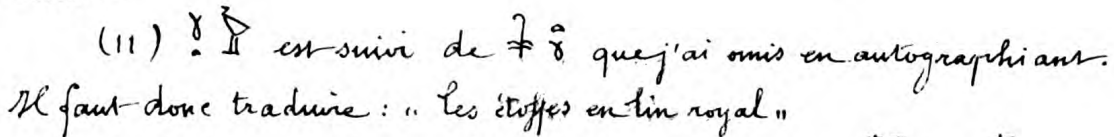 (11) est suivi de que j'ai omis en autographiant.
Il faut donc traduire : „ les étoffes en lin royal „